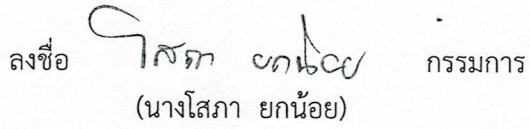 ลงชื่อ โสภา ยกน้อย กรรมการ
(นางโสภา ยกน้อย)